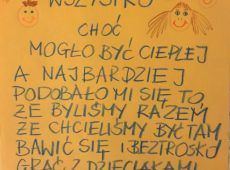 WSZYSTKO
CHOĆ
MOGŁO BYĆ CIEPLEJ
A NAJBARDZIEJ
PODOBAŁO MI SIĘ TO,
ŻE BYLIŚMY RAZEM
ŻE CHCIELIŚMY BYĆ TAM
BAWIĆ SIĘ I BEZTROSKO
GRAĆ Z DZIECIAKAMI